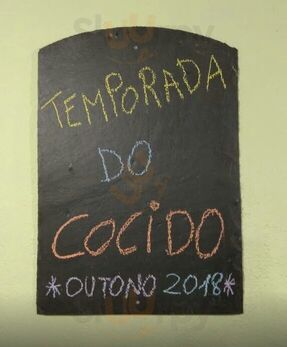 TEMPORADA
DO
COCiDO
*OUTONO 2018*